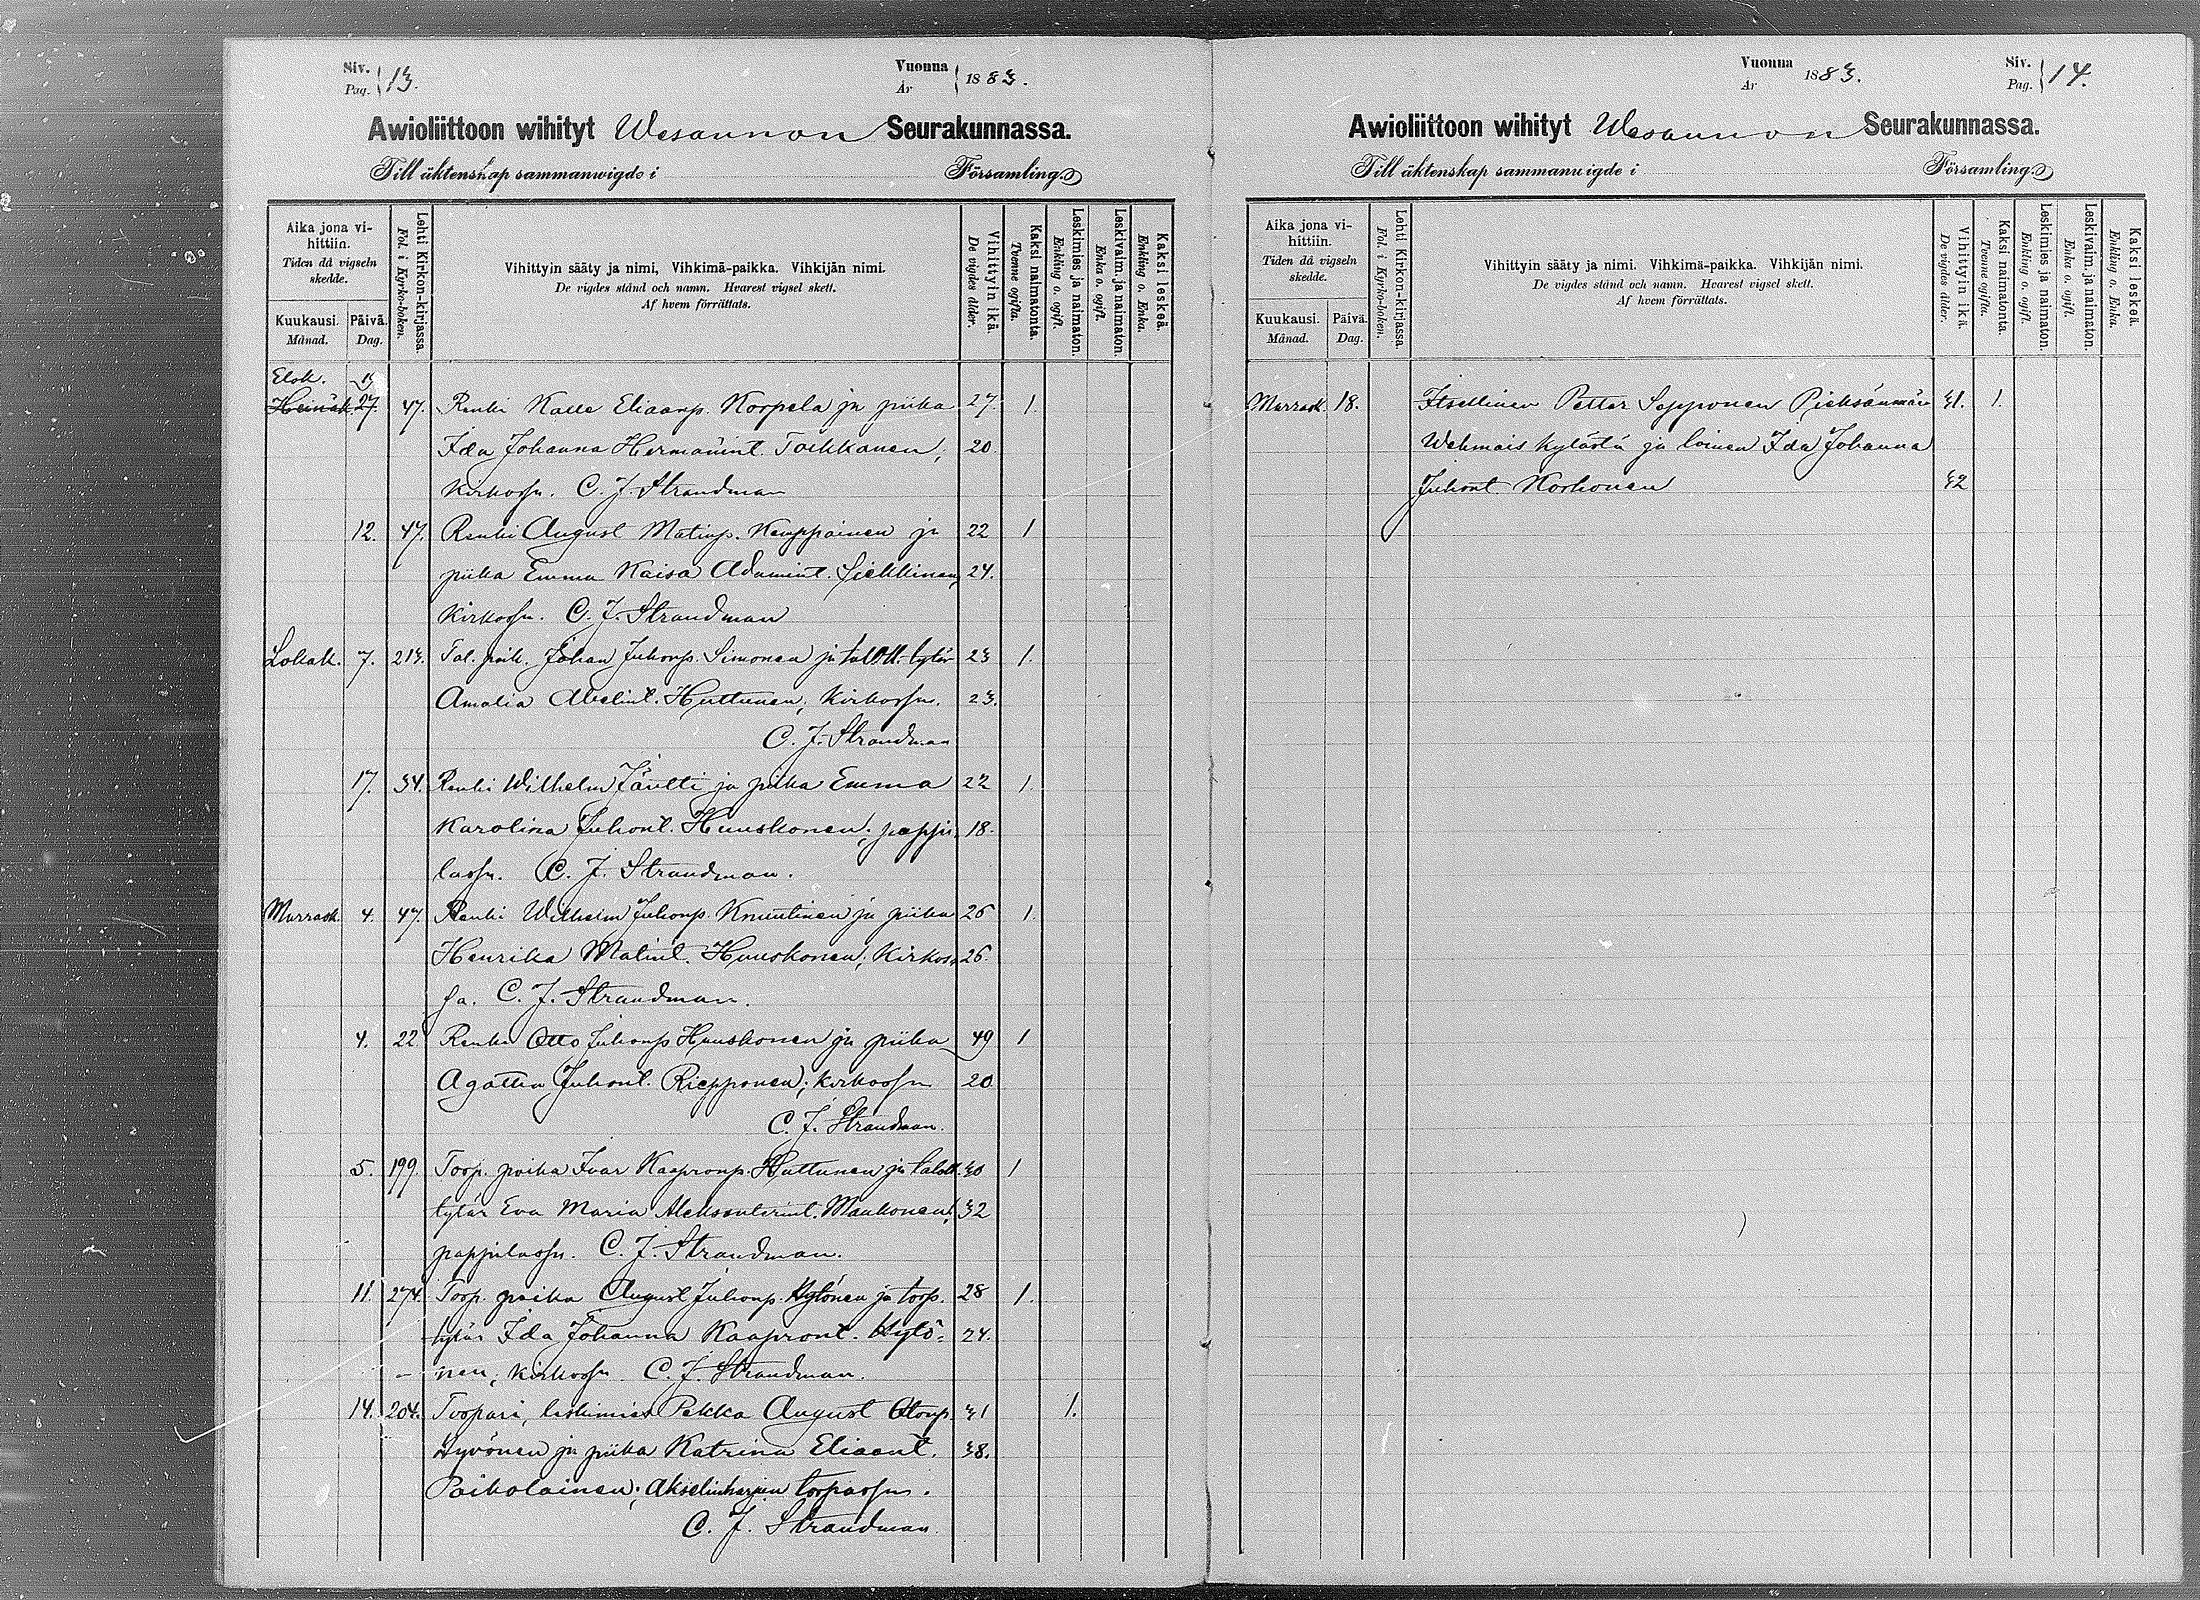 Siv. Pag. 13.
Vuonna År 1883.
Awioliittoon wihityt Wesannon Seurakunnassa.
Till äktenskap sammanwigde i Församling.
Aika jona vihittiin. Tiden då vigseln skedde.
Kuukausi. Månad.
Päivä. Dag.
Lehti Kirkon-kirjassa. Fol. i Kyrko-boken.
Vihittyin sääty ja nimi, Vihkimä-paikka. Vihkijän nimi.
De vigdes stånd och namn. Hvarest vigsel skett.
Af hvem förrättats.
Vihittyin ikä. De vigdes ålder.
Kaksi naimatonta. Tvenne ogifta.
Leskimies ja naimaton. Enkling o. ogift.
Leskivaim. ja naimaton. Enka o. ogift.
Kaksi leskeä. Enkling o. Enka.
Elok.
Heinäk. 27. 47. Renki Kalle Eliaanp. Korpela ja piika 27. 1.
Ida Johanna Hermannint. Toikkanen; 20.
Kirkossa. C. J. Strandman
12. 47. Renki August Matinp. Kauppainen ja 22 1
piika Emma Kaisa Adamint. 24.
Kirkossa. C. J. Strandman
Lokak. 7. 213. Tal. poik. Johan Juhonp. Simonen ja taloll. tytär 23 1.
Amalia Abelint. Huttunen; Kirkossa. 23.
C. J. Strandman
17. 34. Renki Wilhelm Jäntti ja piika Emma 22 1.
Karolina Juhont. Huuskonen; pappi- 18.
lassa. C. J. Strandman.
Marrask. 4. 47. Renki Wilhelm Juhonp. Knuutinen ja piika 26 1.
Henrika Matint. Huuskonen; Kirkos- 26.
sa. C. J. Strandman.
4. 22 Renki Otto Juhonp Huuskonen ja piika 49 1
Agatha Juhont. Riepponen; Kirkossa 20
C. J. Strandman.
5. 199. Torp. poika Ivar Kaapronp. Huttunen ja taloll. 30 1
tytär Eva Maria Aleksanterint. Maukonen; 32
pappilassa. C. J. Strandman.
11. 274. Torp. poika August Juhonp. Hytönen ja torp. 28 1.
tytär Ida Johanna Kaapront. Hytö- 24.
nen; Kirkossa C. J. Strandman.
14. 204. Torpari, leskimies Pekka August Otonp. 31 1.
Hyvönen ja piika Katrina Eliaant. 38.
Paikolainen; Akselinharjun torpassa.
C. J. Strandman
Vuonna År 1883.
Siv. Pag. 14.
Awioliittoon wihityt Wesannon Seurakunnassa.
Till äktenskap sammanwigde i Församling.
Aika jona vihittiin. Tiden då vigseln skedde.
Kuukausi. Månad.
Päivä. Dag.
Lehti Kirkon-kirjassa. Fol. i Kyrko-boken.
Vihittyin sääty ja nimi. Vihkimä-paikka. Vihkijän nimi.
De vigdes stånd och namn. Hvarest vigsel skett.
Af hvem förrättats.
Vihittyin ikä. De vigdes ålder.
Kaksi naimatonta. Tvenne ogifta.
Leskimies ja naimaton. Enkling o. ogift.
Leskivaim. ja naimaton. Enka o. ogift.
Kaksi leskeä. Enkling o. Enka.
Marrask. 18. Itsellinen Petter Sepponen Pieksänmäen 31. 1.
Wehmais kylästä ja loinen Ida Johanna
Juhont. Korhonen 32